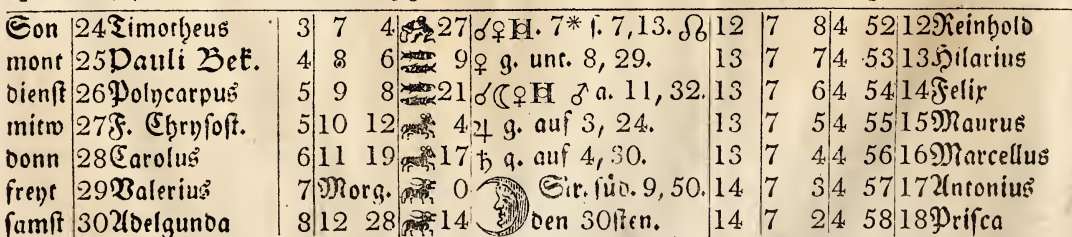 Son 24 Timotheus 3 7 4 27 ☌♀♅. 7* ſ. 7, 13. ☊ 12 7 8 4 52 12 Reinhold
mont 25 Pauli Bek. 4 8 6 9 ♀ g. unt. 8, 29. 13 7 7 4 53 13 Hilarius
dienſt 26 Polycarpus 5 9 8 21 ☌☾♀♅ ♂ a. 11, 32. 13 7 6 4 54 14 Felix
mitw 27 F. Chryſoſt. 5 10 12 4 ♃ g. auf 3, 24. 13 7 5 4 55 15 Maurus
donn 28 Carolus 6 11 19 17 ♄ g. auf 4, 30. 13 7 4 4 56 16 Marcellus
freyt 29 Valerius 7 Morg. 0 Sir. ſüd. 9, 50. 14 7 3 4 57 17 Antonius
ſamſt 30 Adelgunda 8 12 28 14 den 30ſten. 14 7 2 4 58 18 Priſca